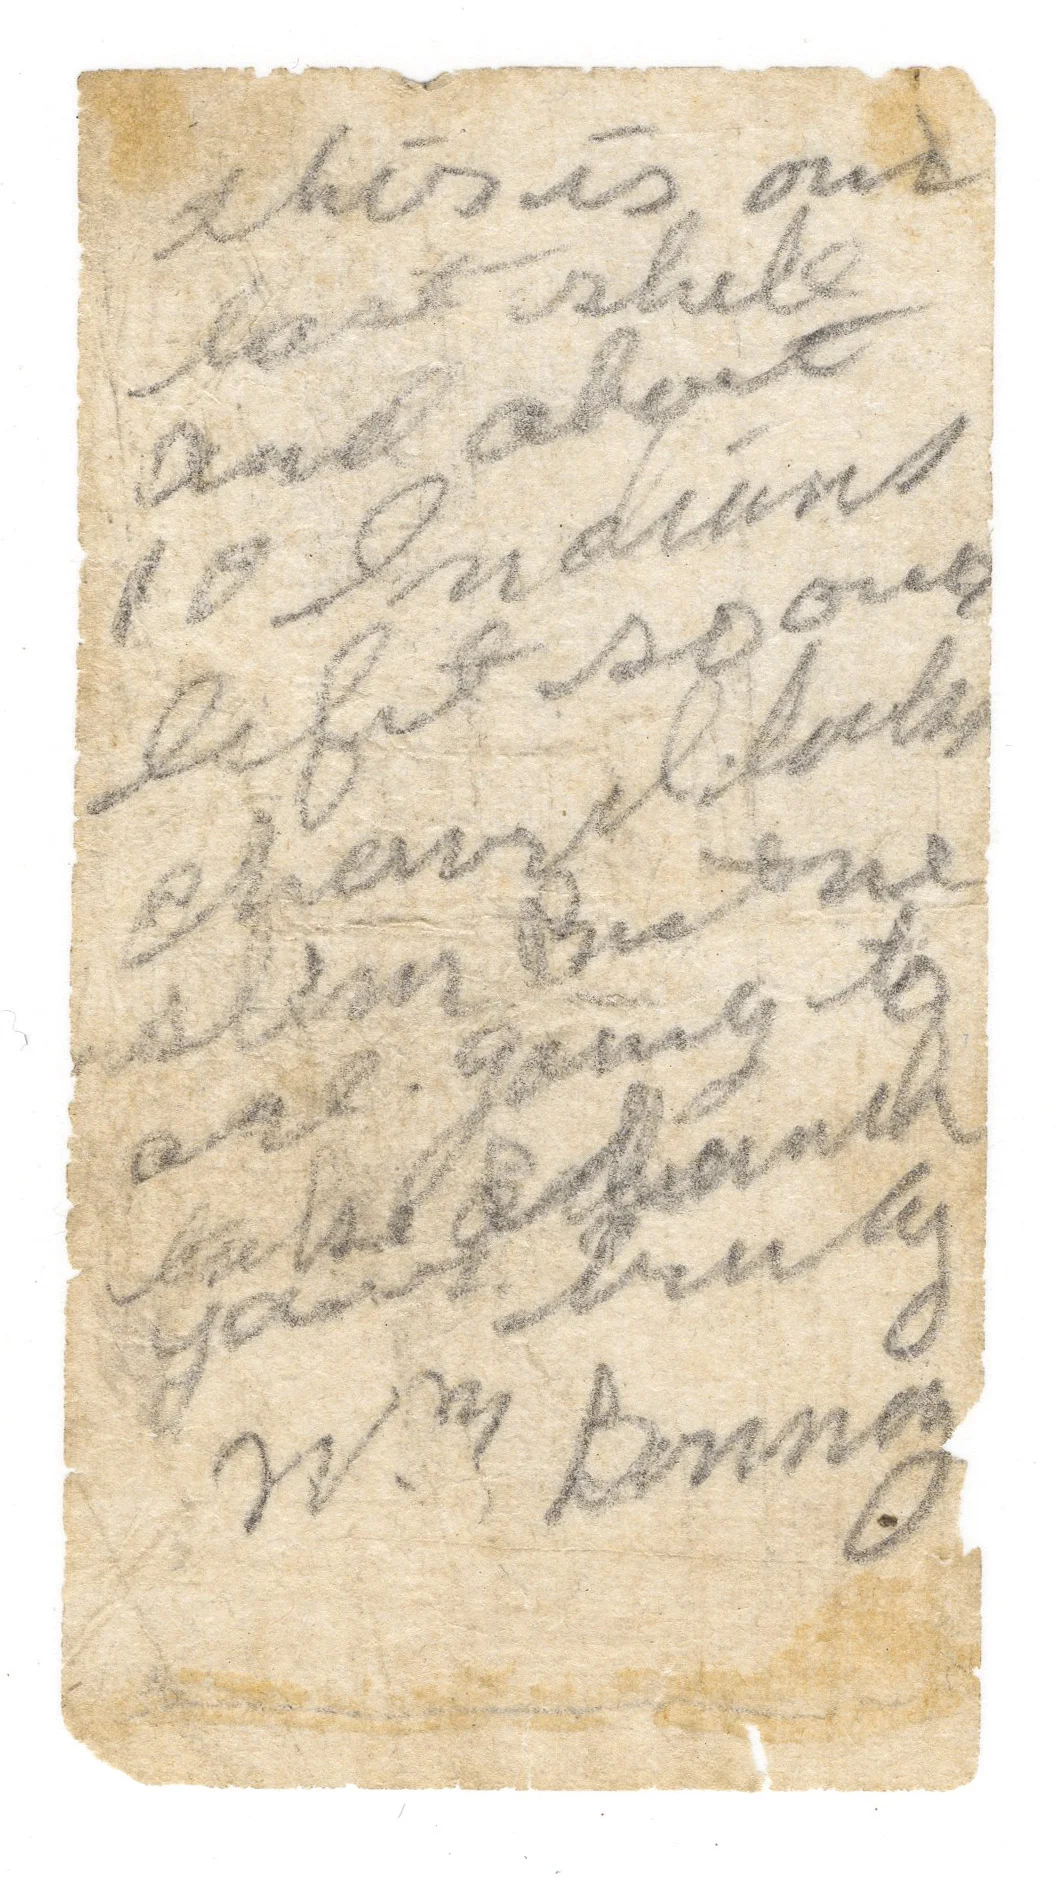 this is out
last shell
and about
10 Indians
left so our
chance looks
slim But we
are going to
take a chance
yours truly
Wm Denny